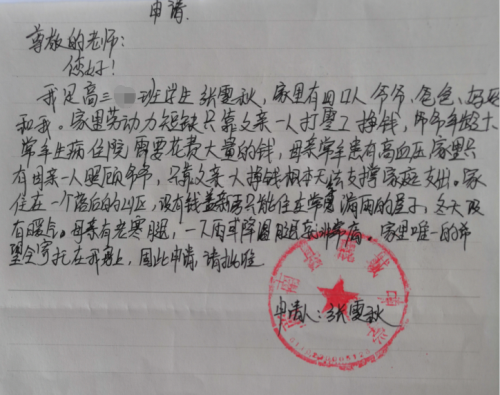 申请
尊敬的老师:
您好!
我是高三 班学生张雯秋,家里有四口人爷爷、爸爸、妈妈
和我。家里劳动力短缺只靠父亲一人打零工挣钱,爷爷年龄大
常年生病住院需要花费大量的钱,母亲常年患有高血压家里只
有母亲一人照顾爷爷,只靠父亲一人挣钱根本无法支撑家庭支出。家
住在一个落后的山区,没有钱盖新房只能住在常年漏雨的屋子,冬天没
有暖气。母亲有老寒腿,一下雨或降温腿疼非常痛。家里唯一的希
望全寄托在我身上,因此申请,请批准。
申请人:张雯秋